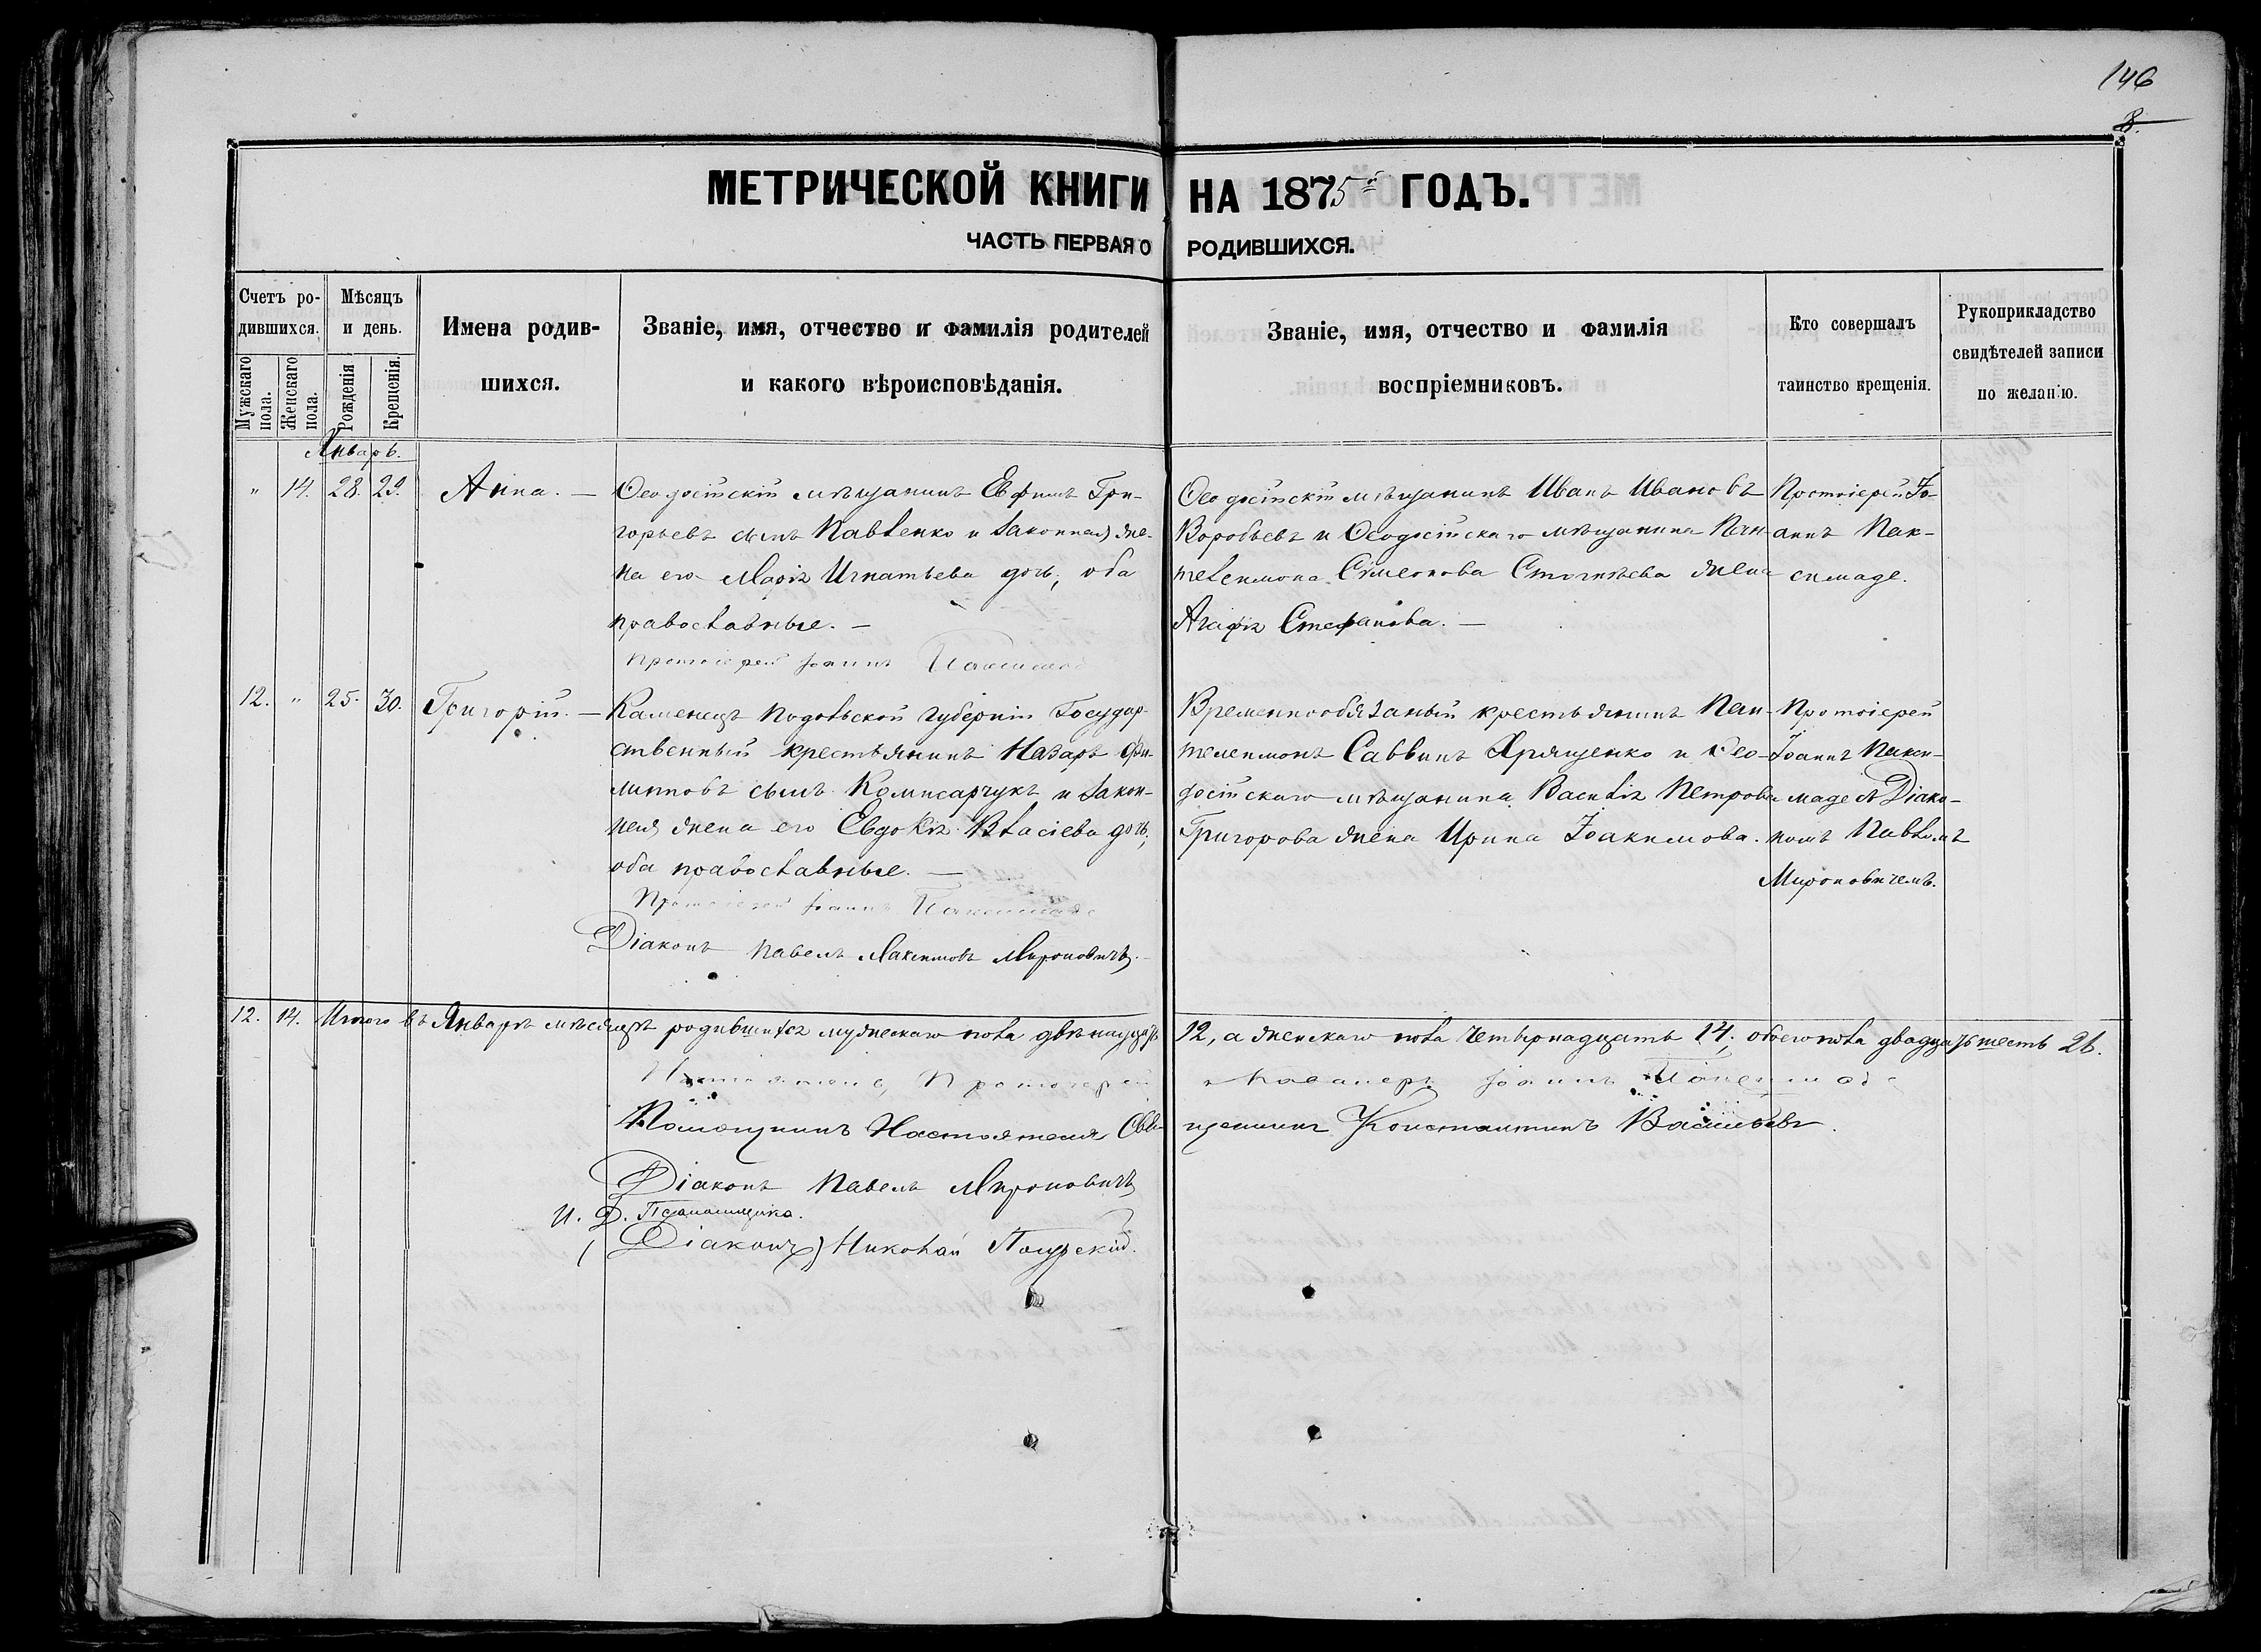 146
8.
МЕТРИЧЕСКОЙ КНИГИ НА 1875й ГОДЪ.
ЧАСТЬ ПЕРВАЯ О РОДИВШИХСЯ.
Счетъ ро-
дившихся.
Мужскаго пола.
Женскаго пола.
Мѣсяцъ
и день.
Рожденія
Крещенія.
Имена родив-
шихся.
Званіе, имя, отчество и фамилія родителей
и какого вѣроисповѣданія.
Званіе, имя, отчество и фамилія
воспріемниковъ.
Кто совершалъ
таинство крещенія.
Рукоприкладство
свидѣтелей записи
по желанію.
Январь.
" 14. 28. 29. Анна. —
Ѳеодосійскій мѣщанинъ Евфимъ Гри-
горьевъ сынъ Павленко и законная же-
на его Марія Игнатьева дочь, оба
православные. —
Протоіерей Іоаннъ Паксимаде
Ѳеодосійскій мѣщанинъ Иванъ Ивановъ
Воробьевъ и Ѳеодосійскаго мѣщанина Пан-
телеимона Симеонова жена
Агафія Стефанова. —
Протоіерей Іо-
аннъ Пак-
симаде.
12. " 25. 30. Григорій. —
Каменецъ Подольской губерніи Государ-
ственный крестьянинъ Назаръ
сынъ Комисарчукъ и закон-
ная жена его Евдокія Власіева дочь,
оба православные. —
Протоіерей Іоаннъ Паксимаде
Діаконъ Павелъ Максимовъ Мироновичъ.
Временнообязаный крестьянинъ Пан-
телеимонъ Саввинъ Хрященко и Ѳео-
досійскаго мѣщанина Василія Петрова
Григорова жена Ирина Іоакимова.
Протоіерей
Іоаннъ Пакси-
маде съ Діако-
номъ Павломъ
Мироновичемъ.
12. 14. Итого въ Январѣ мѣсяцѣ родившихся мужескаго пола двѣнадцать 12, а женскаго пола четырнадцать 14; обоего пола двадцать шесть 26.
Настоятель, Протоіерей и Кавалеръ Іоаннъ Паксимаде
Помощникъ Настоятеля Священникъ Константинъ Васильевъ.
Діаконъ Павелъ Мироновичъ
И. Д. Псаломщика.
(Діаконъ) Николай